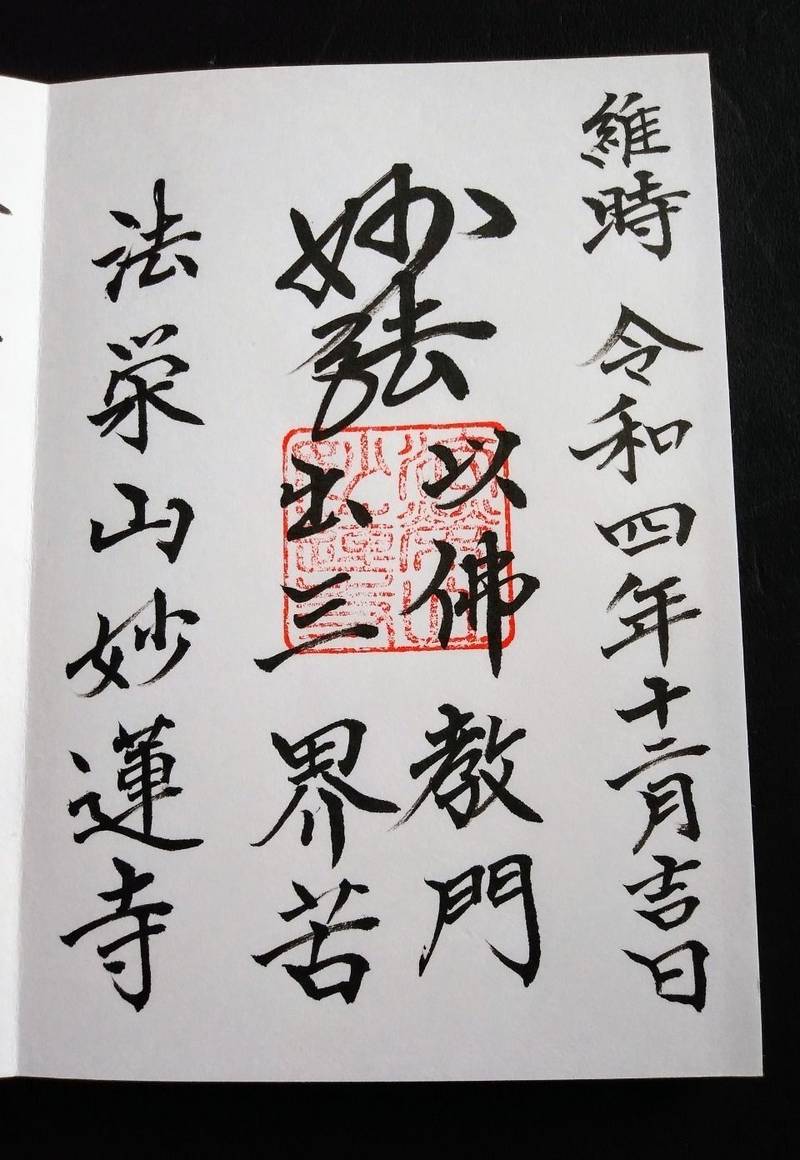 維時 令和四年十二月吉日
妙法
以佛教門
出三界苦
法栄山妙蓮寺